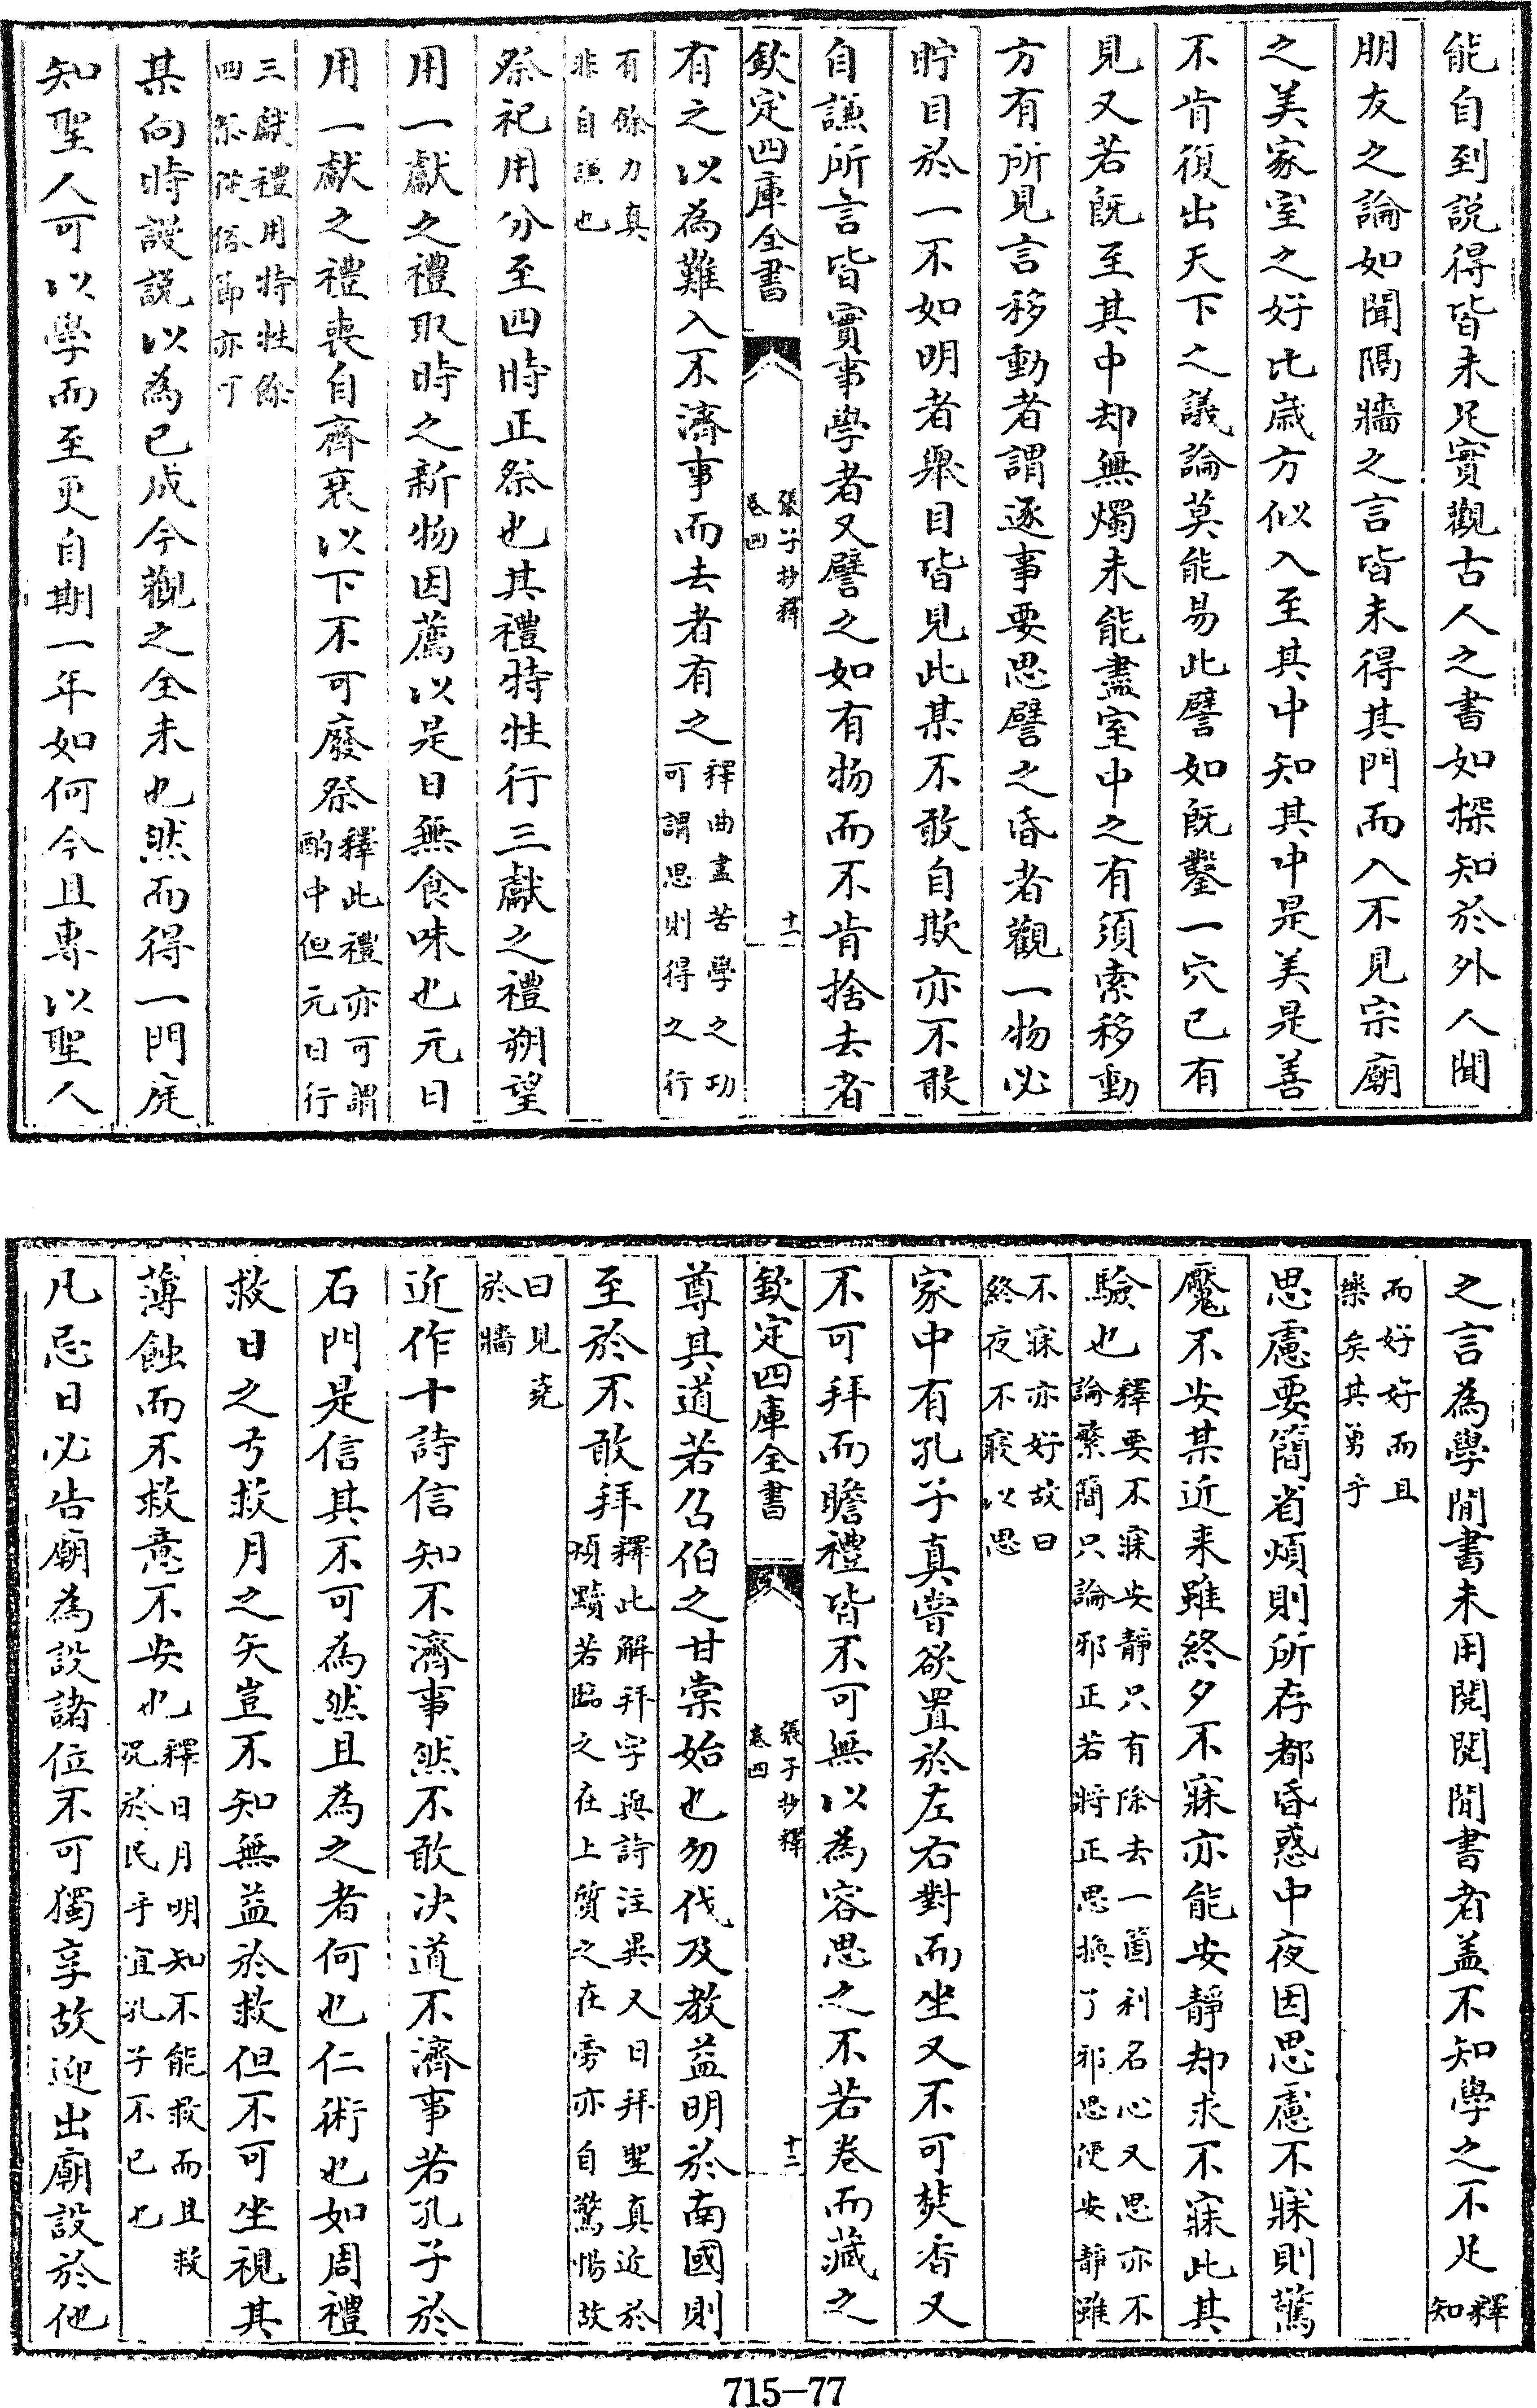 能自到説得皆未足實觀古人之書如探知於外人聞
朋友之論如聞隔牆之言皆未得其門而入不見宗廟
之美家室之好比歳方似入至其中知其中是美是善
不肯復出天下之議論莫能易此譬如既鑿一穴已有
見又若既至其中却無燭未能盡室中之有須索移動
方有所見言移動者謂逐事要思譬之昏者觀一物必
貯目於一不如明者舉目皆見此某不敢自欺亦不敢
自謙所言皆實事學者又譬之如有物而不肯捨去者
欽定四庫全書
張子抄釋
卷四
十一
有之以為難入不濟事而去者有之釋曲盡苦學之功
可謂思則得之行
有餘力真
非自謙也
祭祀用分至四時正祭也其禮特牲行三獻之禮朔望
用一獻之禮取時之新物因薦以是日無食味也元日
用一獻之禮喪自齊衰以下不可廢祭釋此禮亦可謂
酌中但元日行
三獻禮用特牲餘
四祭從俗節亦可
某向時謾説以為已成今觀之全未也然而得一門庭
知聖人可以學而至更自期一年如何今且專以聖人
之言為學閒書未用閱閱閒書者盖不知學之不足釋
知
而好好而且
樂矣其勇乎
思慮要簡省煩則所存都昏惑中夜因思慮不寐則驚
魘不安某近来雖終夕不寐亦能安靜却求不寐此其
驗也釋要不寐安靜只有除去一箇利名心又思亦不
論繁簡只論邪正若將正思換了邪思便安靜雖
不寐亦好故曰
終夜不寢以思
家中有孔子真嘗欲置於左右對而坐又不可焚香又
不可拜而瞻禮皆不可無以為容思之不若卷而藏之
欽定四庫全書
張子抄釋
卷四
十二
尊其道若召伯之甘棠始也勿伐及教益明於南國則
至於不敢拜釋此解拜字與詩注異又曰拜聖真近於
煩黷若臨之在上質之在旁亦自驚惕故
曰見堯
於牆
近作十詩信知不濟事然不敢决道不濟事若孔子於
石門是信其不可為然且為之者何也仁術也如周禮
救日之弓救月之矢豈不知無益於救但不可坐視其
薄蝕而不救意不安也釋日月明知不能救而且救
况於民乎宜孔子不已也
凡忌日必告廟為設諸位不可獨享故迎出廟設於他
715-77